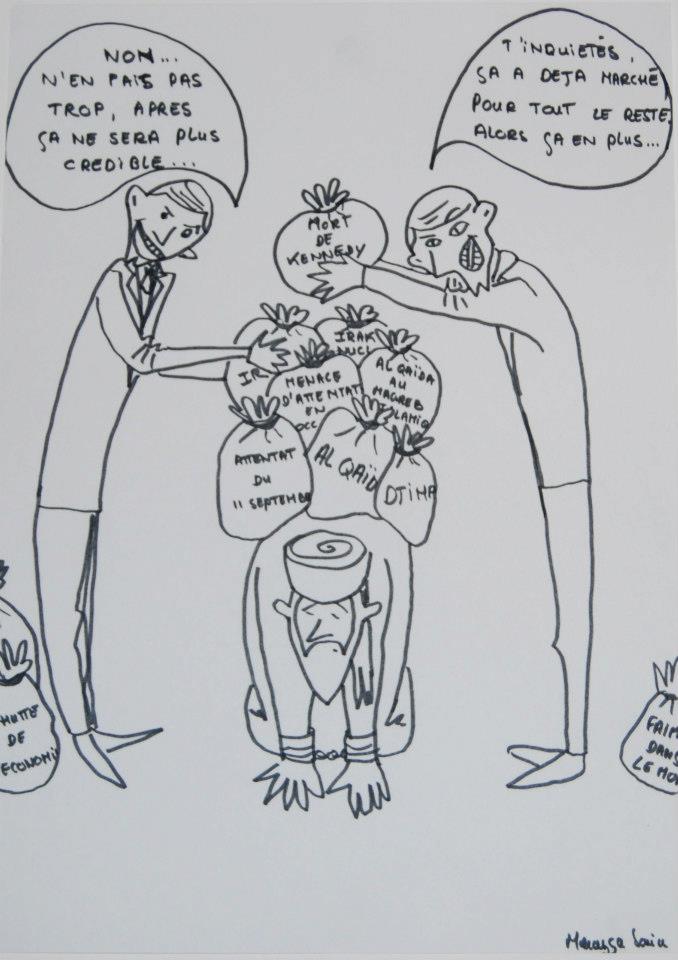 NON...
N'EN FAIS PAS
TROP, APRES
ÇA NE SERA PLUS
CREDIBLE...
T'INQUIETÉS,
ÇA A DEJA MARCHÉ
POUR TOUT LE RESTE,
ALORS ÇA EN PLUS...
MORT
DE
KENNEDY
IRAK
IR
MENACE
D'ATTENTAT
EN
OCC
AL QAÏDA
AU
MAGREB
ATTENTAT
DU
11 SEPTEMBRE
AL QAÏD
DJIHA
DE
ECONOMI
FAIM
DANS
LE MO